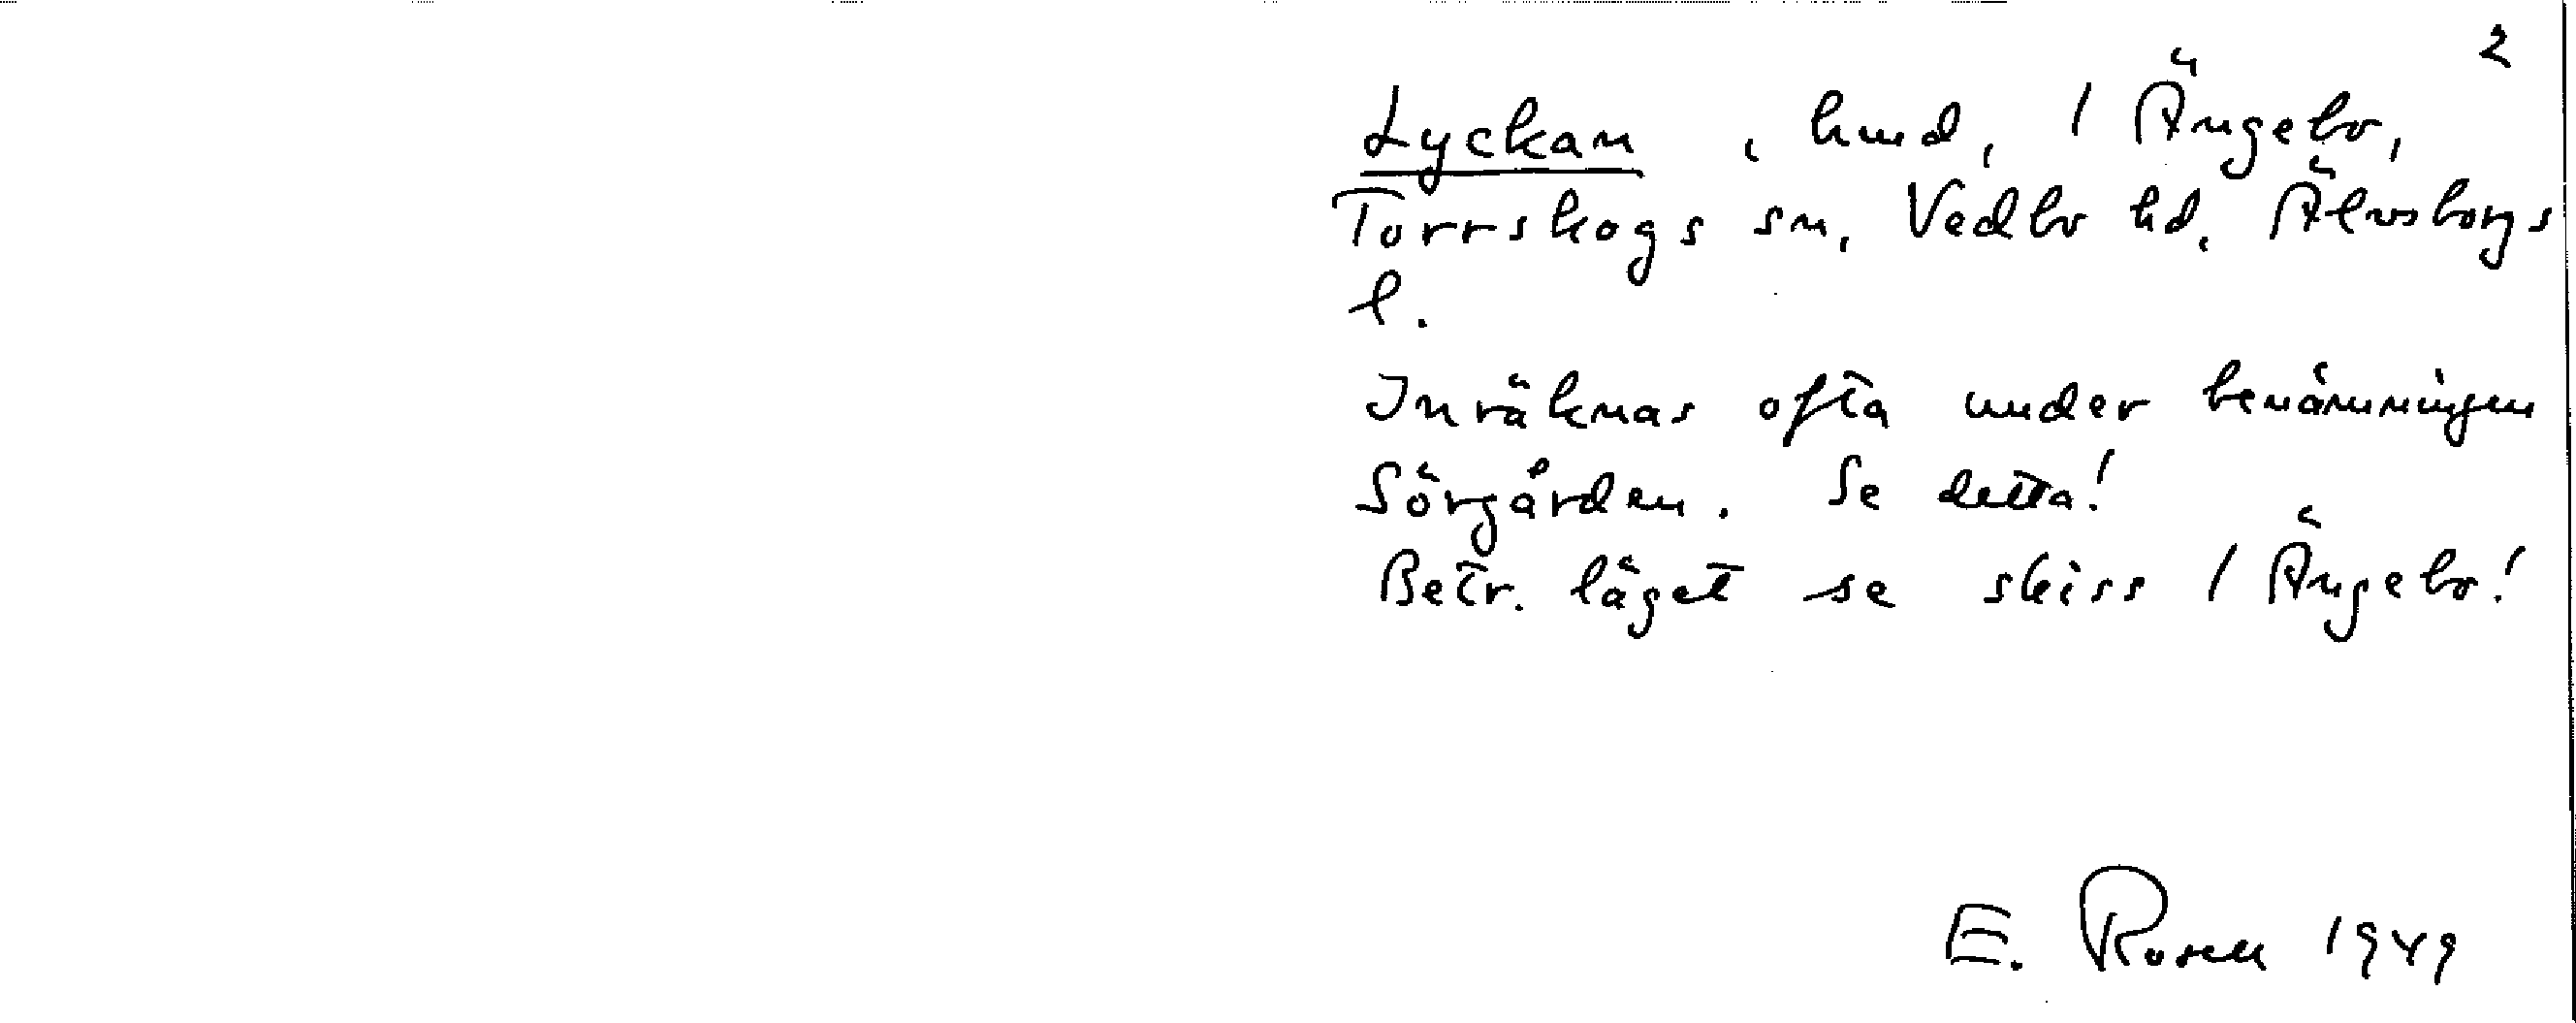 2
Lyckan, hmd, 1 Ängebo,
Torrskogs sn, Vedbo hd, Älvsborgs
l.
Inräknas ofta under benämningen
Sörgården. Se detta!
Betr. läget se skiss 1 Ängebo!
E. Rosell 1949